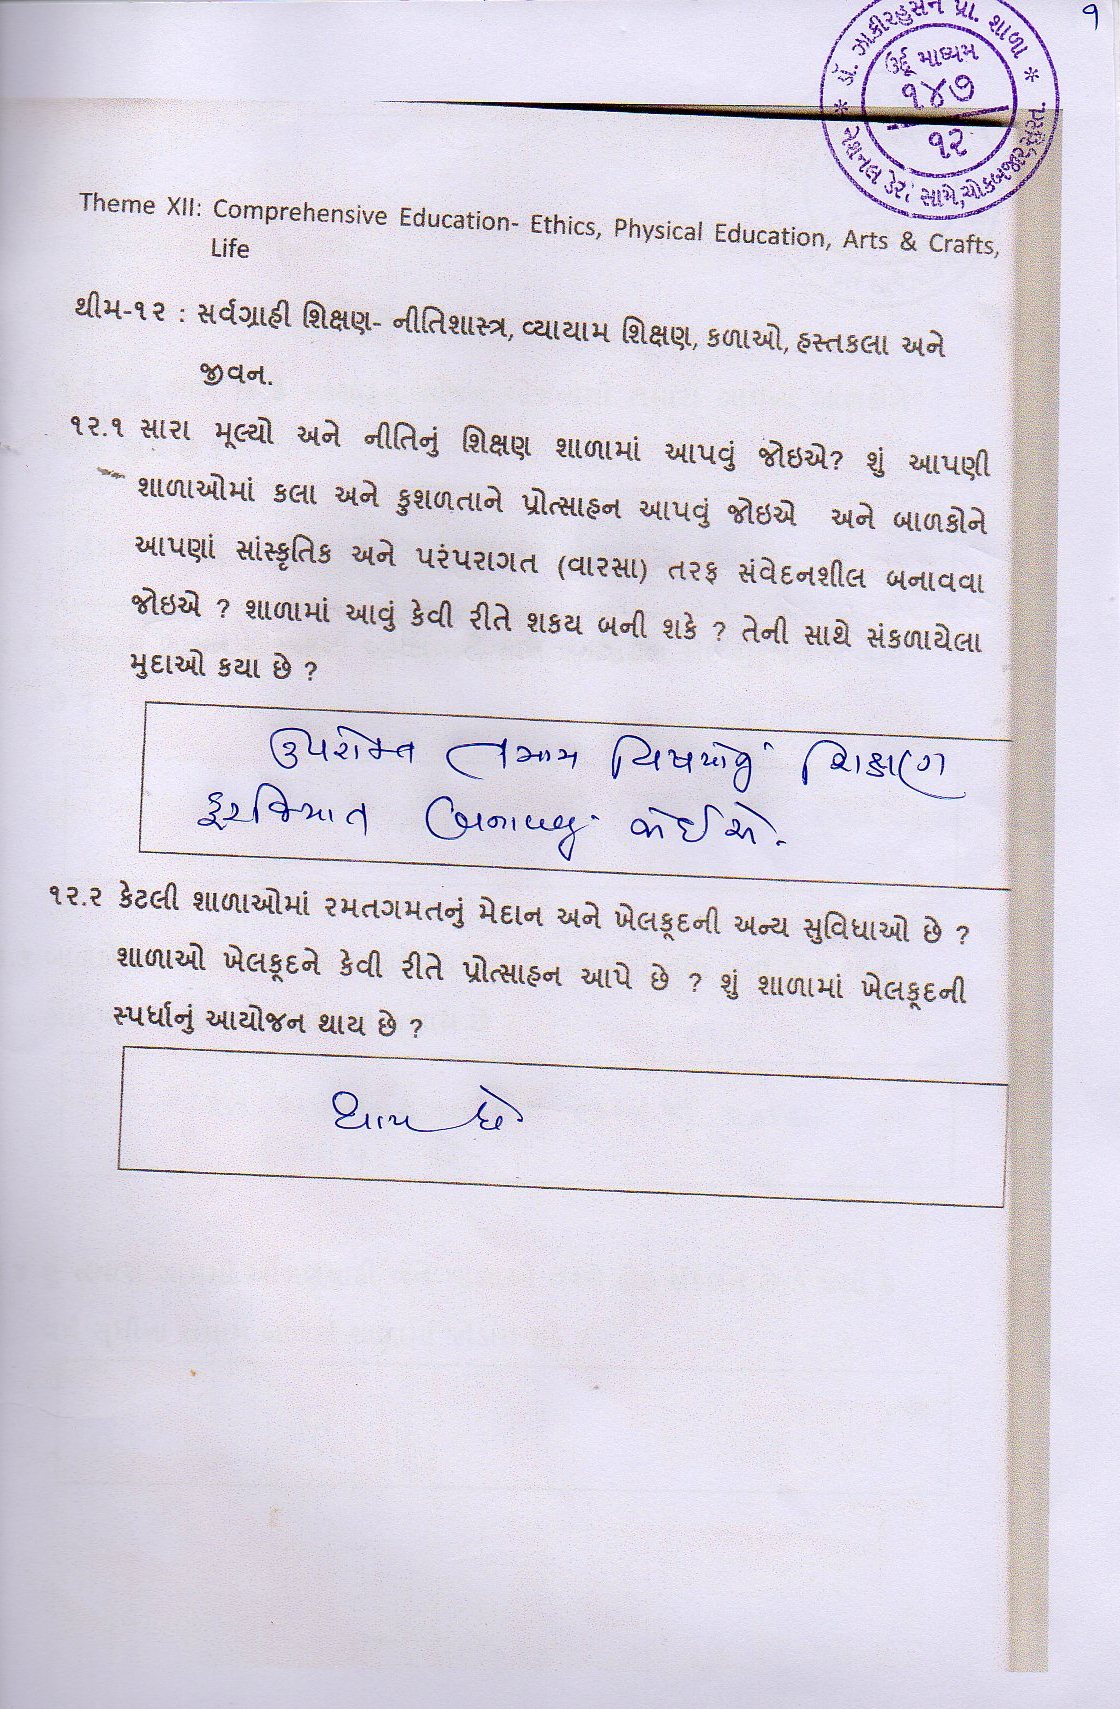 ૧
ડૉ. ઝાકીરહુસેન પ્રા. શાળા
ઉર્દૂ માધ્યમ
૧૪૭
૧૨
નેશનલ ડેરી સામે, ચોકબજાર, સુરત.
Theme XII: Comprehensive Education- Ethics, Physical Education, Arts & Crafts,
Life
થીમ-૧૨ : સર્વગ્રાહી શિક્ષણ- નીતિશાસ્ત્ર, વ્યાયામ શિક્ષણ, કળાઓ, હસ્તકલા અને
જીવન.
૧૨.૧ સારા મૂલ્યો અને નીતિનું શિક્ષણ શાળામાં આપવું જોઇએ? શું આપણી
શાળાઓમાં કલા અને કુશળતાને પ્રોત્સાહન આપવું જોઇએ અને બાળકોને
આપણાં સાંસ્કૃતિક અને પરંપરાગત (વારસા) તરફ સંવેદનશીલ બનાવવા
જોઇએ ? શાળામાં આવું કેવી રીતે શકય બની શકે ? તેની સાથે સંકળાયેલા
મુદાઓ કયા છે ?
ઉપરોક્ત તમામ વિષયોનું શિક્ષણ
ફરજિયાત બનાવવું જોઈએ.
૧૨.૨ કેટલી શાળાઓમાં રમતગમતનું મેદાન અને ખેલકૂદની અન્ય સુવિધાઓ છે ?
શાળાઓ ખેલકૂદને કેવી રીતે પ્રોત્સાહન આપે છે ? શું શાળામાં ખેલકૂદની
સ્પર્ધાનું આયોજન થાય છે ?
થાય છે